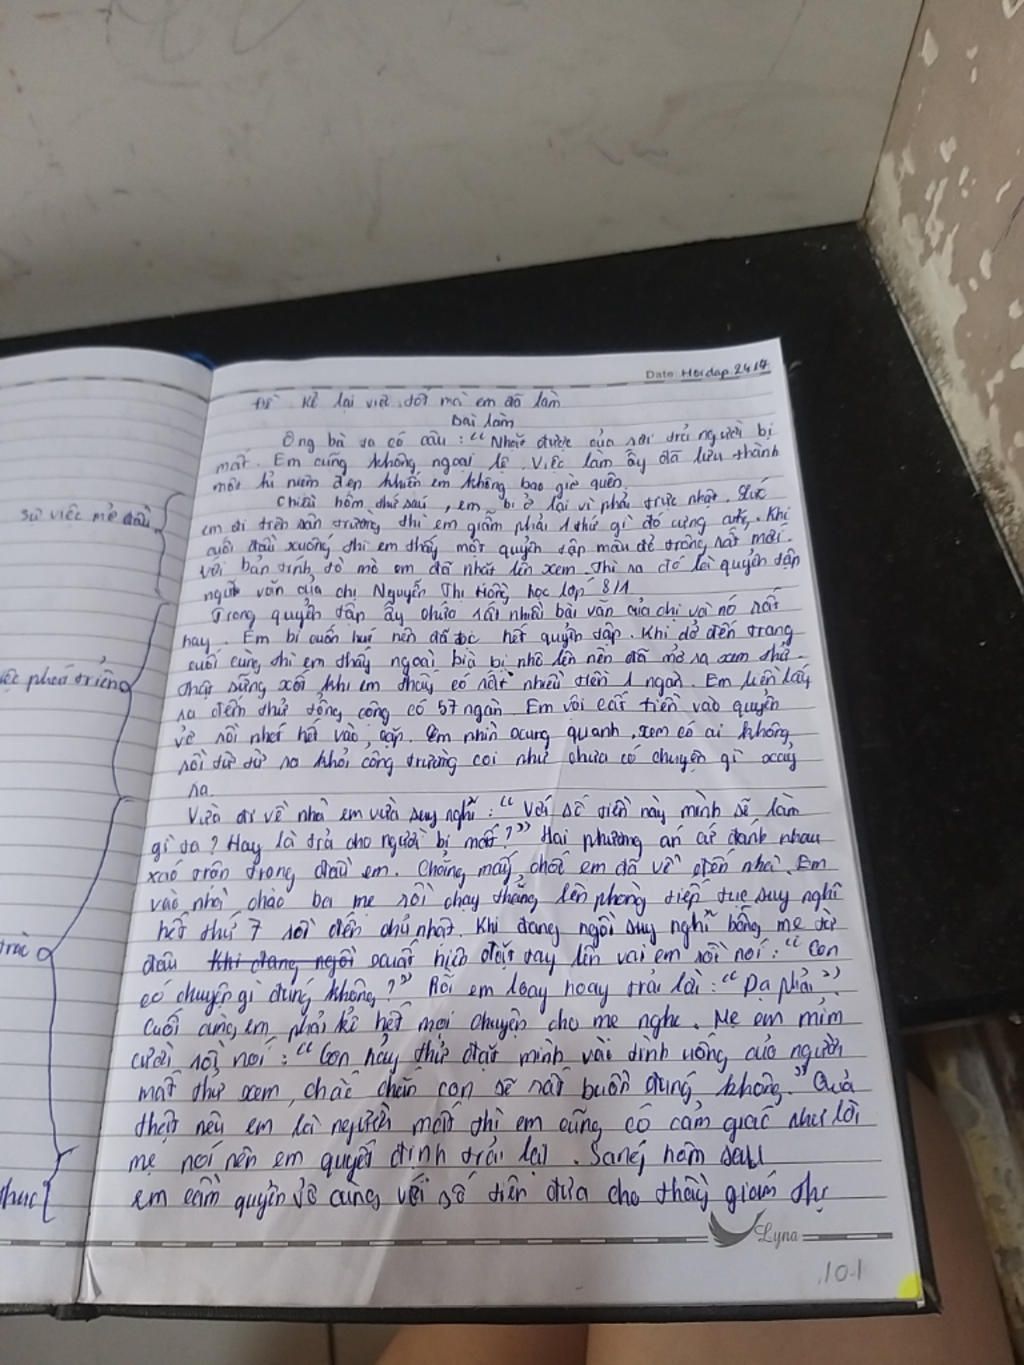 Date: Hoidap247
Đề: Kể lại việc tốt mà em đã làm
Bài làm
Ông bà ta có câu: "Nhặt được của rơi trả người bị
mất. Em cũng không ngoại lệ. Việc làm ấy đã lưu thành
một kỉ niệm đẹp khiến em không bao giờ quên.
Chiều hôm thứ sáu, em bị ở lại vì phải trực nhật. Lúc
em đi trên sân trường thì em giẫm phải 1 thứ gì đó cứng. Khi
cuối đầu xuống thì em thấy một quyển tập màu đỏ trông rất mới.
Với bản tính tò mò em đã nhặt lên xem. Thì ra đó là quyển tập
ngữ văn của chị Nguyễn Thị Hồng học lớp 8/1
Trong quyển tập ấy chứa rất nhiều bài văn của chị và nó rất
hay. Em bị cuốn hút nên đã đọc hết quyển tập. Khi dở đến trang
cuối cùng thì em thấy ngoài bìa bị nhô lên nên đã mở ra xem thử.
Thật sững xốt khi em thấy có rất nhiều tiền 1 ngàn. Em liền lấy
ra đếm thử tổng cộng có 57 ngàn. Em vội cất tiền vào quyển
vở rồi nhét hết vào cặp. Em nhìn xung quanh xem có ai không
rồi từ từ ra khỏi cổng trường coi như chưa có chuyện gì xảy
ra.
Vừa đi về nhà em vừa suy nghĩ: "Với số tiền này mình sẽ làm
gì ta? Hay là trả cho người bị mất?" Hai phương án cứ đánh nhau
xáo trộn trong đầu em. Chẳng mấy chốc em đã về đến nhà. Em
vào nhà chào ba mẹ rồi chạy thẳng lên phòng tiếp tục suy nghĩ
hết thứ 7 rồi đến chủ nhật. Khi đang ngồi suy nghĩ bỗng mẹ từ
đâu khi đang ngồi xuất hiện đặt tay lên vai em rồi nói: "Con
có chuyện gì đúng không?" Rồi em loay hoay trả lời: "Dạ phải".
Cuối cùng em phải kể hết mọi chuyện cho mẹ nghe. Mẹ em mỉm
cười rồi nói: "Con hãy thử đặt mình vào tình uống của người
mất thử xem, chắc chắn con sẽ rất buồn đúng không." Quả
thật nếu em là người mất thì em cũng có cảm giác như lời
mẹ nói nên em quyết định trả lại. Sáng hôm sau
em cầm quyển vở cùng với số tiền đưa cho thầy giám thị
Lyna
101
sự việc mở đầu
việc phát triển
thúc